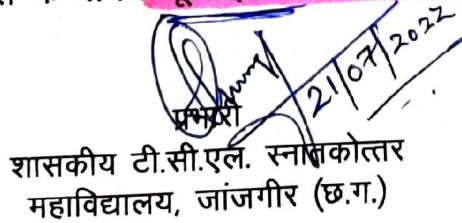 21/07/2022
प्रभारी
शासकीय टी.सी.एल. स्नातकोत्तर
महाविद्यालय, जांजगीर (छ.ग.)